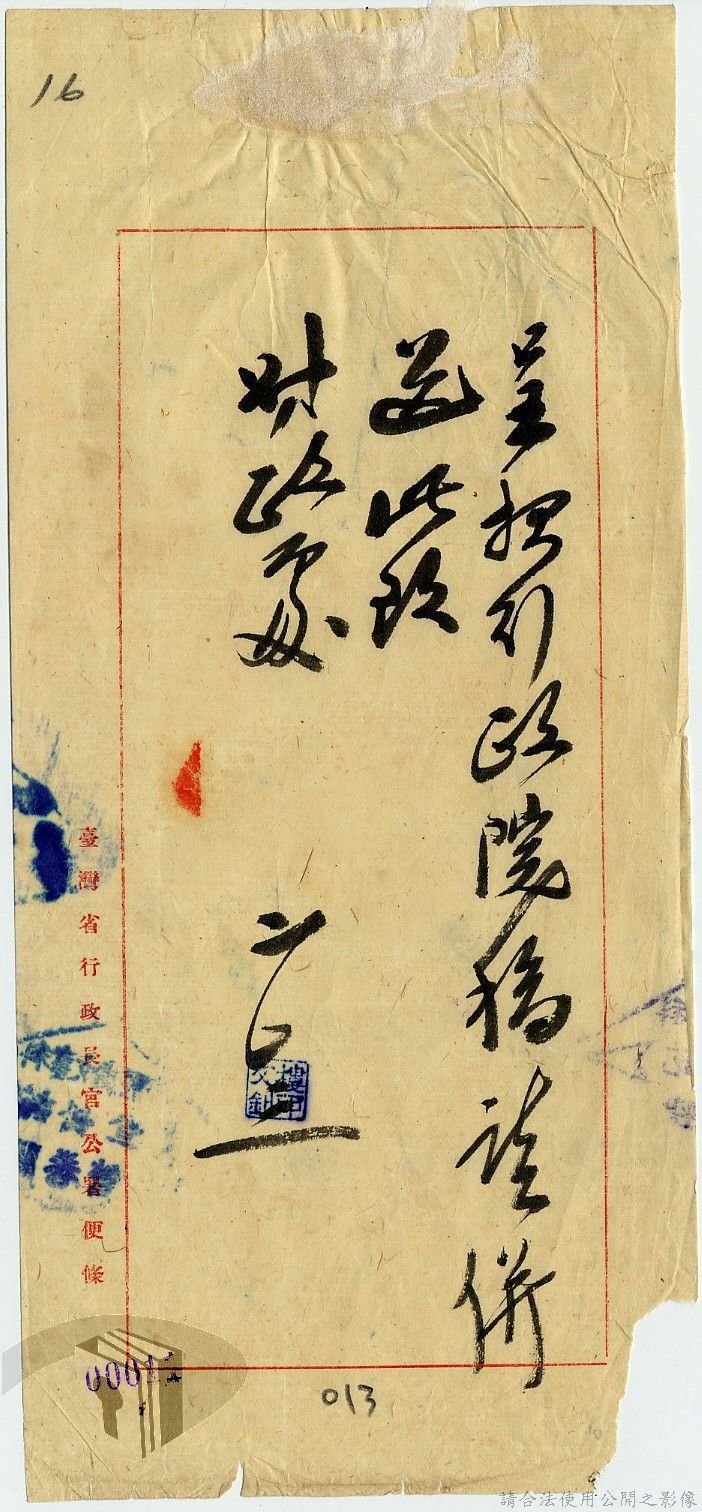 16
呈報行政院稿請併
蓋此致
財政處
樓印
文釗
臺灣省行政長官公署便條
013
請合法使用公開之影像